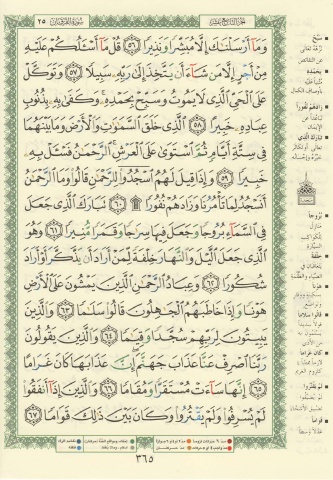 سورة الفرقان ٢٥
الجزء التاسع عشر
وَمَآ أَرْسَلْنَٰكَ إِلَّا مُبَشِّرًا وَنَذِيرًا ﴿٥٦﴾ قُلْ مَآ أَسْـَٔلُكُمْ عَلَيْهِ
مِنْ أَجْرٍ إِلَّا مَن شَآءَ أَن يَتَّخِذَ إِلَىٰ رَبِّهِۦ سَبِيلًا ﴿٥٧﴾ وَتَوَكَّلْ
عَلَى ٱلْحَىِّ ٱلَّذِى لَا يَمُوتُ وَسَبِّحْ بِحَمْدِهِۦ ۚ وَكَفَىٰ بِهِۦ بِذُنُوبِ
عِبَادِهِۦ خَبِيرًا ﴿٥٨﴾ ٱلَّذِى خَلَقَ ٱلسَّمَٰوَٰتِ وَٱلْأَرْضَ وَمَا بَيْنَهُمَا
فِى سِتَّةِ أَيَّامٍ ثُمَّ ٱسْتَوَىٰ عَلَى ٱلْعَرْشِ ۚ ٱلرَّحْمَٰنُ فَسْـَٔلْ بِهِۦ
خَبِيرًا ﴿٥٩﴾ وَإِذَا قِيلَ لَهُمُ ٱسْجُدُوا۟ لِلرَّحْمَٰنِ قَالُوا۟ وَمَا ٱلرَّحْمَٰنُ
أَنَسْجُدُ لِمَا تَأْمُرُنَا وَزَادَهُمْ نُفُورًا ۩ ﴿٦٠﴾ تَبَارَكَ ٱلَّذِى جَعَلَ
فِى ٱلسَّمَآءِ بُرُوجًا وَجَعَلَ فِيهَا سِرَٰجًا وَقَمَرًا مُّنِيرًا ﴿٦١﴾ وَهُوَ
ٱلَّذِى جَعَلَ ٱلَّيْلَ وَٱلنَّهَارَ خِلْفَةً لِّمَنْ أَرَادَ أَن يَذَّكَّرَ أَوْ أَرَادَ
شُكُورًا ﴿٦٢﴾ وَعِبَادُ ٱلرَّحْمَٰنِ ٱلَّذِينَ يَمْشُونَ عَلَى ٱلْأَرْضِ
هَوْنًا وَإِذَا خَاطَبَهُمُ ٱلْجَٰهِلُونَ قَالُوا۟ سَلَٰمًا ﴿٦٣﴾ وَٱلَّذِينَ
يَبِيتُونَ لِرَبِّهِمْ سُجَّدًا وَقِيَٰمًا ﴿٦٤﴾ وَٱلَّذِينَ يَقُولُونَ
رَبَّنَا ٱصْرِفْ عَنَّا عَذَابَ جَهَنَّمَ ۖ إِنَّ عَذَابَهَا كَانَ غَرَامًا
﴿٦٥﴾ إِنَّهَا سَآءَتْ مُسْتَقَرًّا وَمُقَامًا ﴿٦٦﴾ وَٱلَّذِينَ إِذَآ أَنفَقُوا۟
لَمْ يُسْرِفُوا۟ وَلَمْ يَقْتُرُوا۟ وَكَانَ بَيْنَ ذَٰلِكَ قَوَامًا ﴿٦٧﴾
٣٦٥